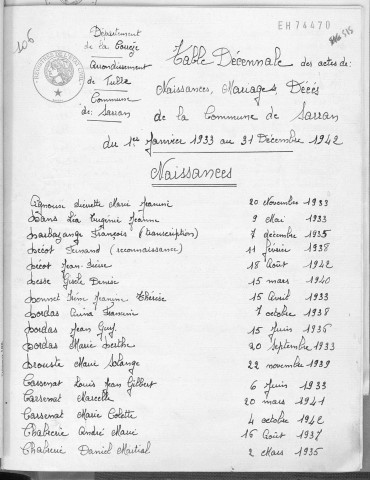 EH74470
106
Département
de la Corrèze
Arrondissement
de Tulle
Commune
de: Sarran
Table Décennale des actes de:
Naissances, Mariages, Décès
de la Commune de Sarran
du 1er Janvier 1933 au 31 Décembre 1942
Naissances
Lucette Marie Jeanne 20 Novembre 1933
Léa Eugénie Jeanne 9 Mai 1933
Barbazange François (transcription) 7 décembre 1935
Fernand (reconnaissance) 11 février 1938
Jean Pierre 18 Août 1942
Besse Gisèle Denise 15 mars 1940
Bonnet Irène Jeannine Thérèse 15 Avril 1933
Bordas 7 octobre 1938
Bordas Jean Guy 15 Juin 1936
Bordas Marie Berthe 20 Septembre 1933
Brouste Marie Solange 22 novembre 1939
Cassenat Louis Jean Gilbert 6 Juin 1933
Cassenat Marcelle 20 mars 1941
Cassenat Marie Colette 4 octobre 1942
Chabrerie André Marie 16 Août 1937
Chabrerie Daniel Martial 2 Mars 1935